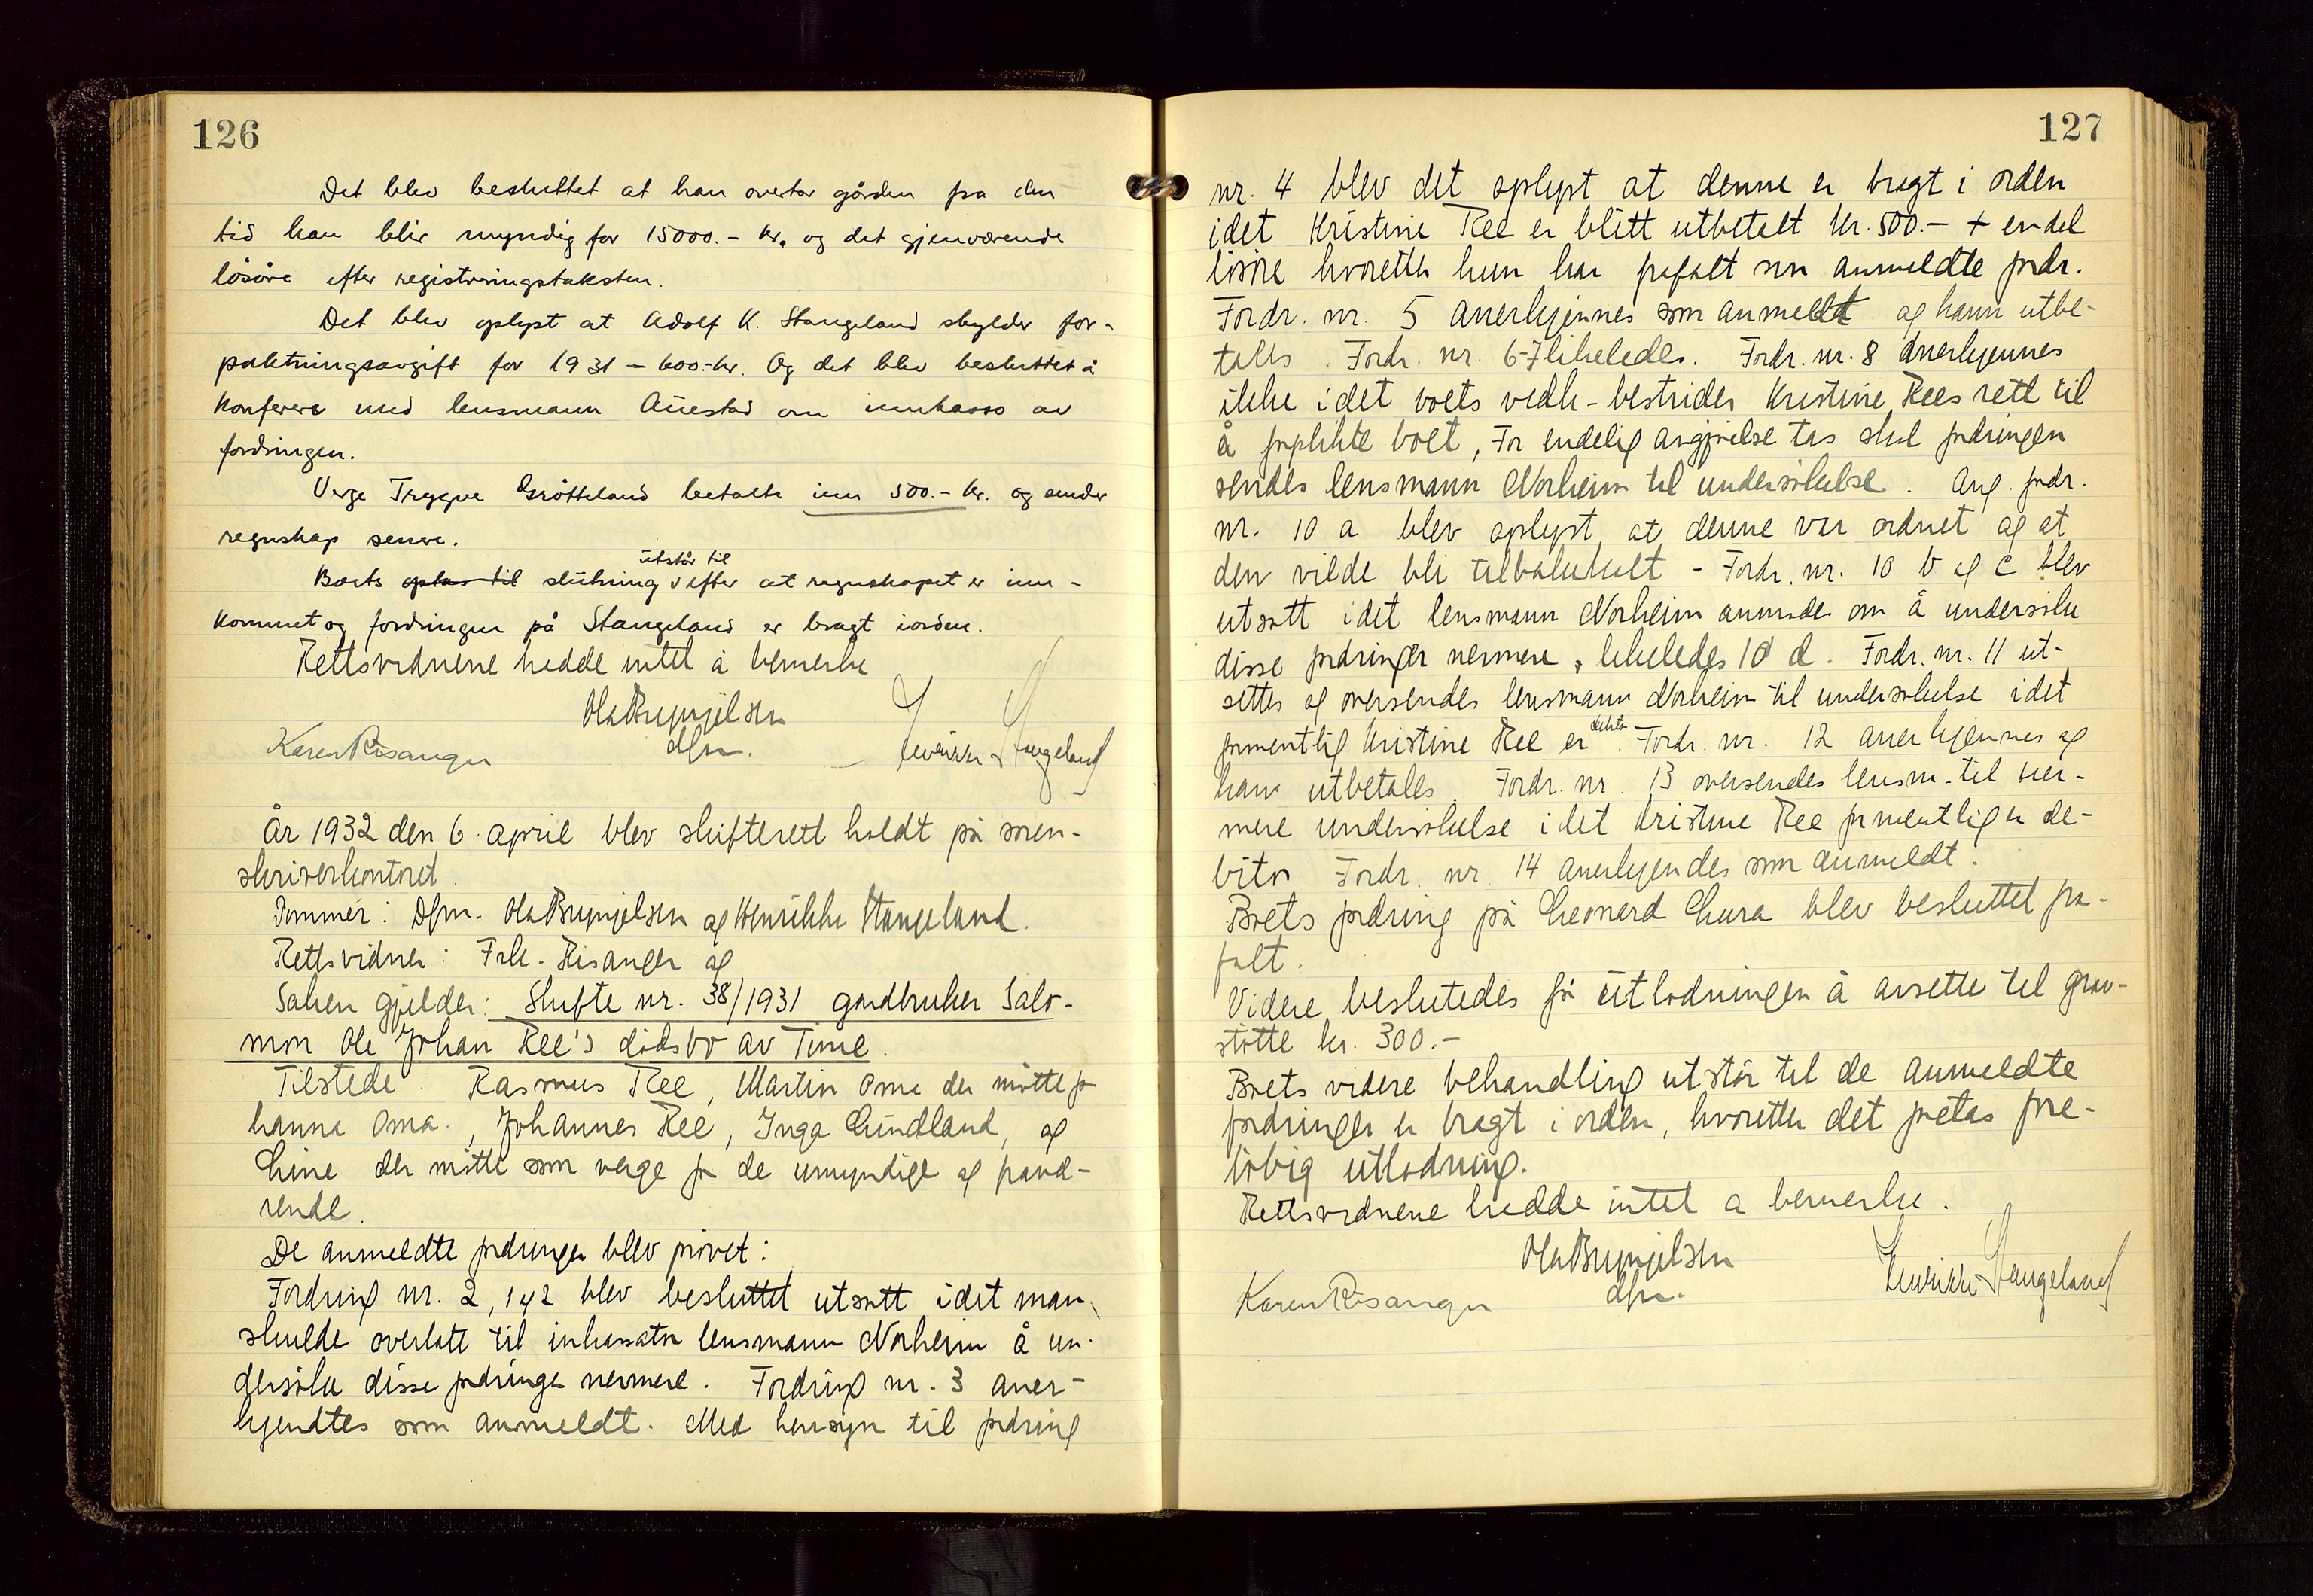 126
Det blev besluttet at han overtar gården fra den
tid han blir myndig for 15000.- kr. og det gjenværende
løsøre efter registreringstaksten.
Det blev oplyst at Adolf K. Stangeland skylder for-
paktningsavgift for 1931 - 600.- kr. Og det blev besluttet å
konferere med lensmann Auestad om innkasso av
fordringen.
Verge Trygve Grötteland betalte inn 500.- kr. og sender
regnskap senere.
utstår til
Boets optas til slutning efter at regnskapet er inn-
kommet og fordringen på Stangeland er bragt iorden.
Rettsvidnene hadde intet å bemerke
Ola Brynjelsen
dfm.
Karen Risanger
Henrikke Stangeland
År 1932 den 6. april blev skifterett holdt på soren-
skriverkontoret.
Dommer: Dfm. Ola Brynjelsen og Henrikke Stangeland.
Rettsvidner: Frk. Risanger og
Saken gjelder: Skifte nr. 38/1931 gardbruker Salo-
mon Ole Johan Ree's dödsbo av Time.
Tilstede: Rasmus Ree, Martin Oma der mötte for
hanna Oma., Johannes Ree, Inga Lundland, og
Line der mötte som verge for de umyndige og fravæ-
rende.
De anmeldte fordringer blev prövet:
Fordring nr. 2, 1 og 2 blev besluttet utsatt idet man
skulde overlatt til inkassator lensmann Norheim å un-
dersöke disse fordringer nermere. Fordring nr. 3 aner-
kjendtes som anmeldt. Med hensyn til fordring
127
nr. 4 blev det oplyst at denne er bragt i orden
idet Kristine Ree er blitt utbetalt kr. 500.- + endel
lösöre hvoretter hun har frafalt sin anmeldte fordr.
Fordr. nr. 5 anerkjennes som anmeldt og kann utbe-
tales. Fordr. nr. 6-7 likeledes. Fordr. nr. 8 anerkjennes
ikke idet boets vedk. bestrider Kristine Rees rett til
å forplikte boet, För endelig avgjörelse tas skal fordringen
sendes lensmann Norheim til undersökelse. Ang. fordr.
nr. 10 a blev oplyst at denne var ordnet og at
den vilde bli tilbakekalt - Fordr. nr. 10 b og c blev
utsatt idet lensmann Norheim anmodes om å undersöke
disse fordringer nermere, likeledes 10 d. Fordr. nr. 11 ut-
settes og oversendes lensmann Norheim til undersökelse idet
formentlig Kristine Ree er debitor. Fordr. nr. 12 anerkjennes og
kan utbetales. Fordr. nr. 13 oversendes lensm. til nær-
mere undersökelse idet Kristine Ree formentlig er de-
bitor Fordr. nr. 14 anerkjendes som anmeldt.
Boets fordring på Leonard Lura blev besluttet fra-
falt.
Videre beslutedes för utlodningen å avsette til grav-
stötte kr. 300.-
Boets videre behandling utstår til de anmeldte
fordringer er bragt i orden, hvoretter det foretas fore-
löbig utlodning.
Rettsvidnene hadde intet a bemerke.
Ola Brynjelsen
dfm.
Karen Risanger
Henrikke Stangeland